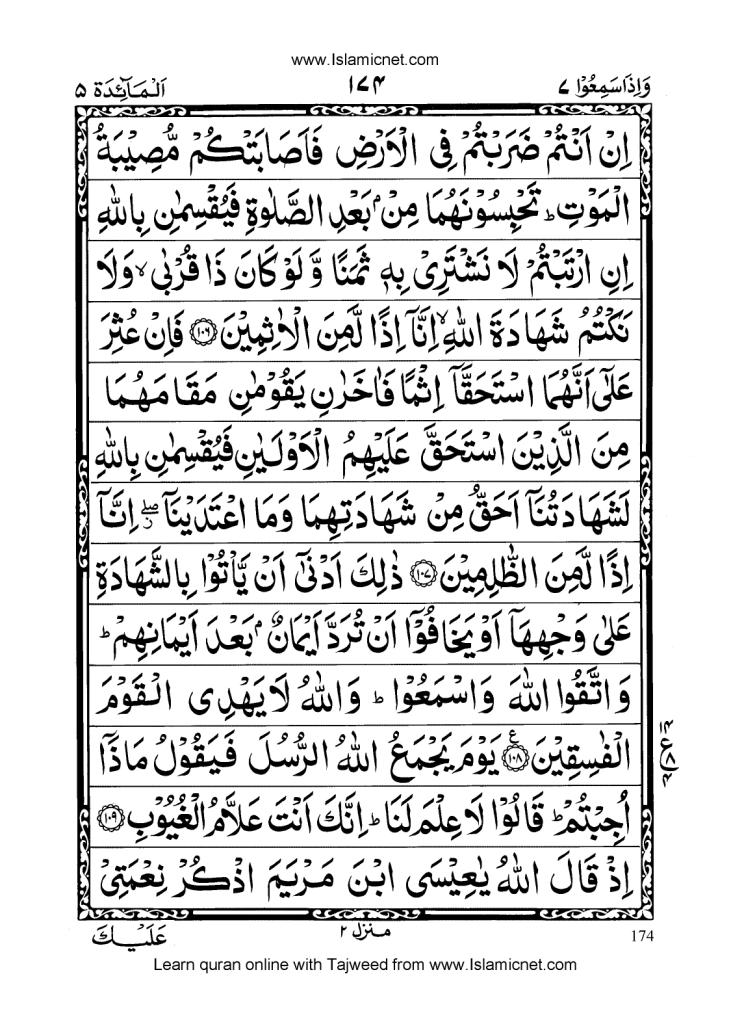 www.Islamicnet.com
وَاِذَاسَمِعُوْا ٧ ١٧۴ اَلْمَآئِدَة ۵
اِنْ اَنْتُمْ ضَرَبْتُمْ فِى الْاَرْضِ فَاَصَابَتْكُمْ مُّصِيْبَةُ
الْمَوْتِ ؕ تَحْبِسُوْنَهُمَا مِنْۢ بَعْدِ الصَّلٰوةِ فَيُقْسِمٰنِ بِاللّٰهِ
اِنِ ارْتَبْتُمْ لَا نَشْتَرِىْ بِهٖ ثَمَنًا وَّ لَوْ كَانَ ذَا قُرْبٰى ۙ وَلَا
نَكْتُمُ شَهَادَةَ اللّٰهِ ۙ اِنَّاۤ اِذًا لَّمِنَ الْاٰثِمِيْنَ ۝١٠٦ فَاِنْ عُثِرَ
عَلٰٓى اَنَّهُمَا اسْتَحَقَّاۤ اِثْمًا فَاٰخَرٰنِ يَقُوْمٰنِ مَقَامَهُمَا
مِنَ الَّذِيْنَ اسْتَحَقَّ عَلَيْهِمُ الْاَوْلَيٰنِ فَيُقْسِمٰنِ بِاللّٰهِ
لَشَهَادَتُنَاۤ اَحَقُّ مِنْ شَهَادَتِهِمَا وَمَا اعْتَدَيْنَاۤ ۖ اِنَّاۤ
اِذًا لَّمِنَ الظّٰلِمِيْنَ ۝١٠٧ ذٰلِكَ اَدْنٰٓى اَنْ يَّاْتُوْا بِالشَّهَادَةِ
عَلٰى وَجْهِهَاۤ اَوْ يَخَافُوْۤا اَنْ تُرَدَّ اَيْمَانٌۢ بَعْدَ اَيْمَانِهِمْ ؕ
وَاتَّقُوا اللّٰهَ وَاسْمَعُوْا ؕ وَاللّٰهُ لَا يَهْدِى الْقَوْمَ
الْفٰسِقِيْنَ ۝١٠٨ ع يَوْمَ يَجْمَعُ اللّٰهُ الرُّسُلَ فَيَقُوْلُ مَاذَاۤ
١۴ ع ٨ ۴
اُجِبْتُمْ ؕ قَالُوْا لَا عِلْمَ لَنَا ؕ اِنَّكَ اَنْتَ عَلَّامُ الْغُيُوْبِ ۝١٠٩
اِذْ قَالَ اللّٰهُ يٰعِيْسَى ابْنَ مَرْيَمَ اذْكُرْ نِعْمَتِىْ
174 منزل ٢ عَلَيْكَ
Learn quran online with Tajweed from www.Islamicnet.com